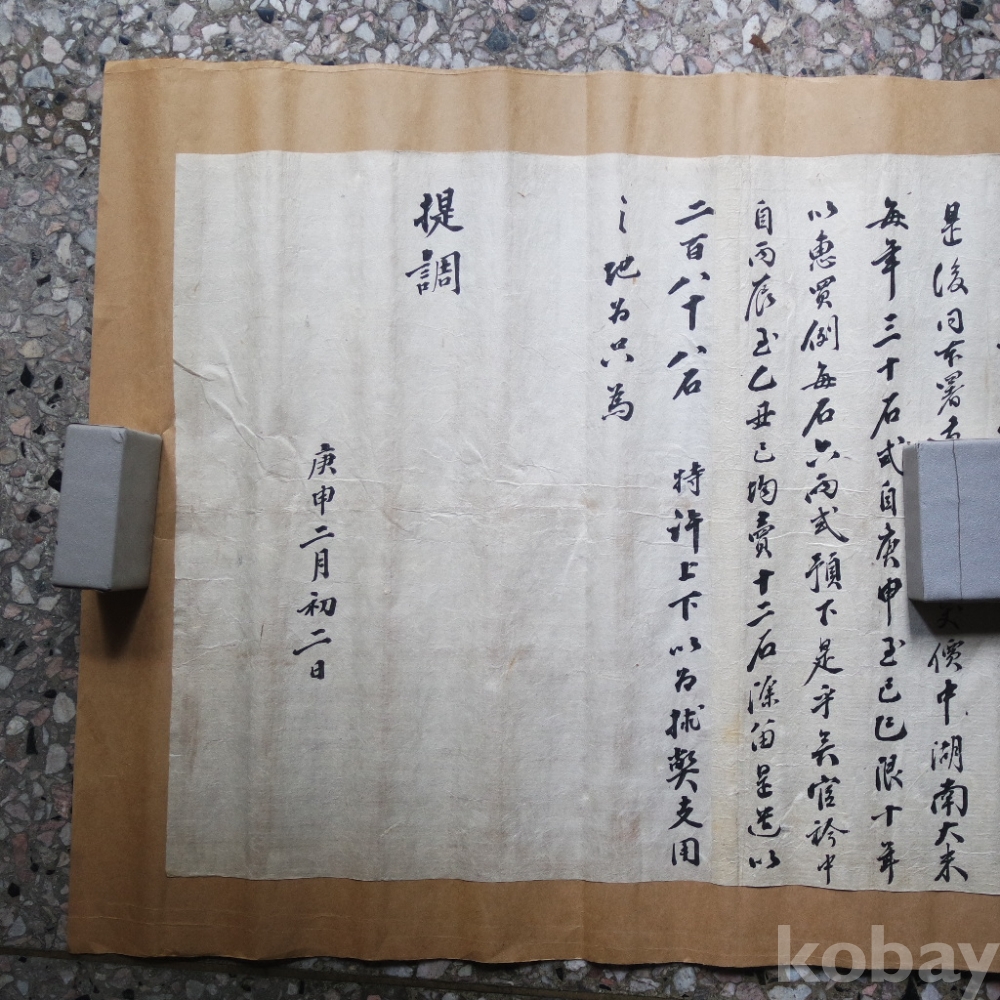 是後同本署 價中湖南大米
每年三十石式自庚申至己巳限十年
以惠買例每石六兩式預下是乎矣官矜中
自丙辰至乙丑已均賣十二石除留是遣以
二百八十八石 特許上下以為捄弊支用
之地為只為
提調
庚申二月初二日
kobay